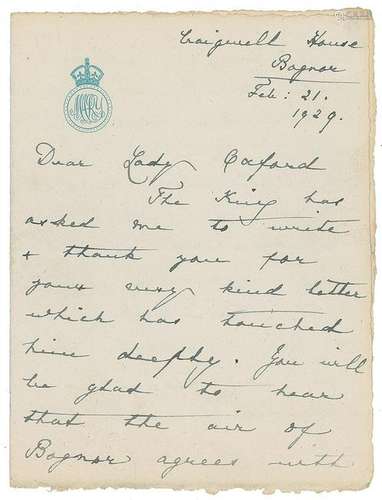 Craigwell House
Bognor
Feb: 21.
1929.
Dear Lady Oxford
The King has
asked me to write
+ thank you for
your very kind letter
which has touched
him deeply. You will
be glad to hear
that the air of
Bognor agrees with